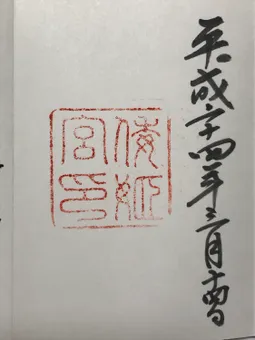 平成二十四年三月十四日
倭姫
宮印